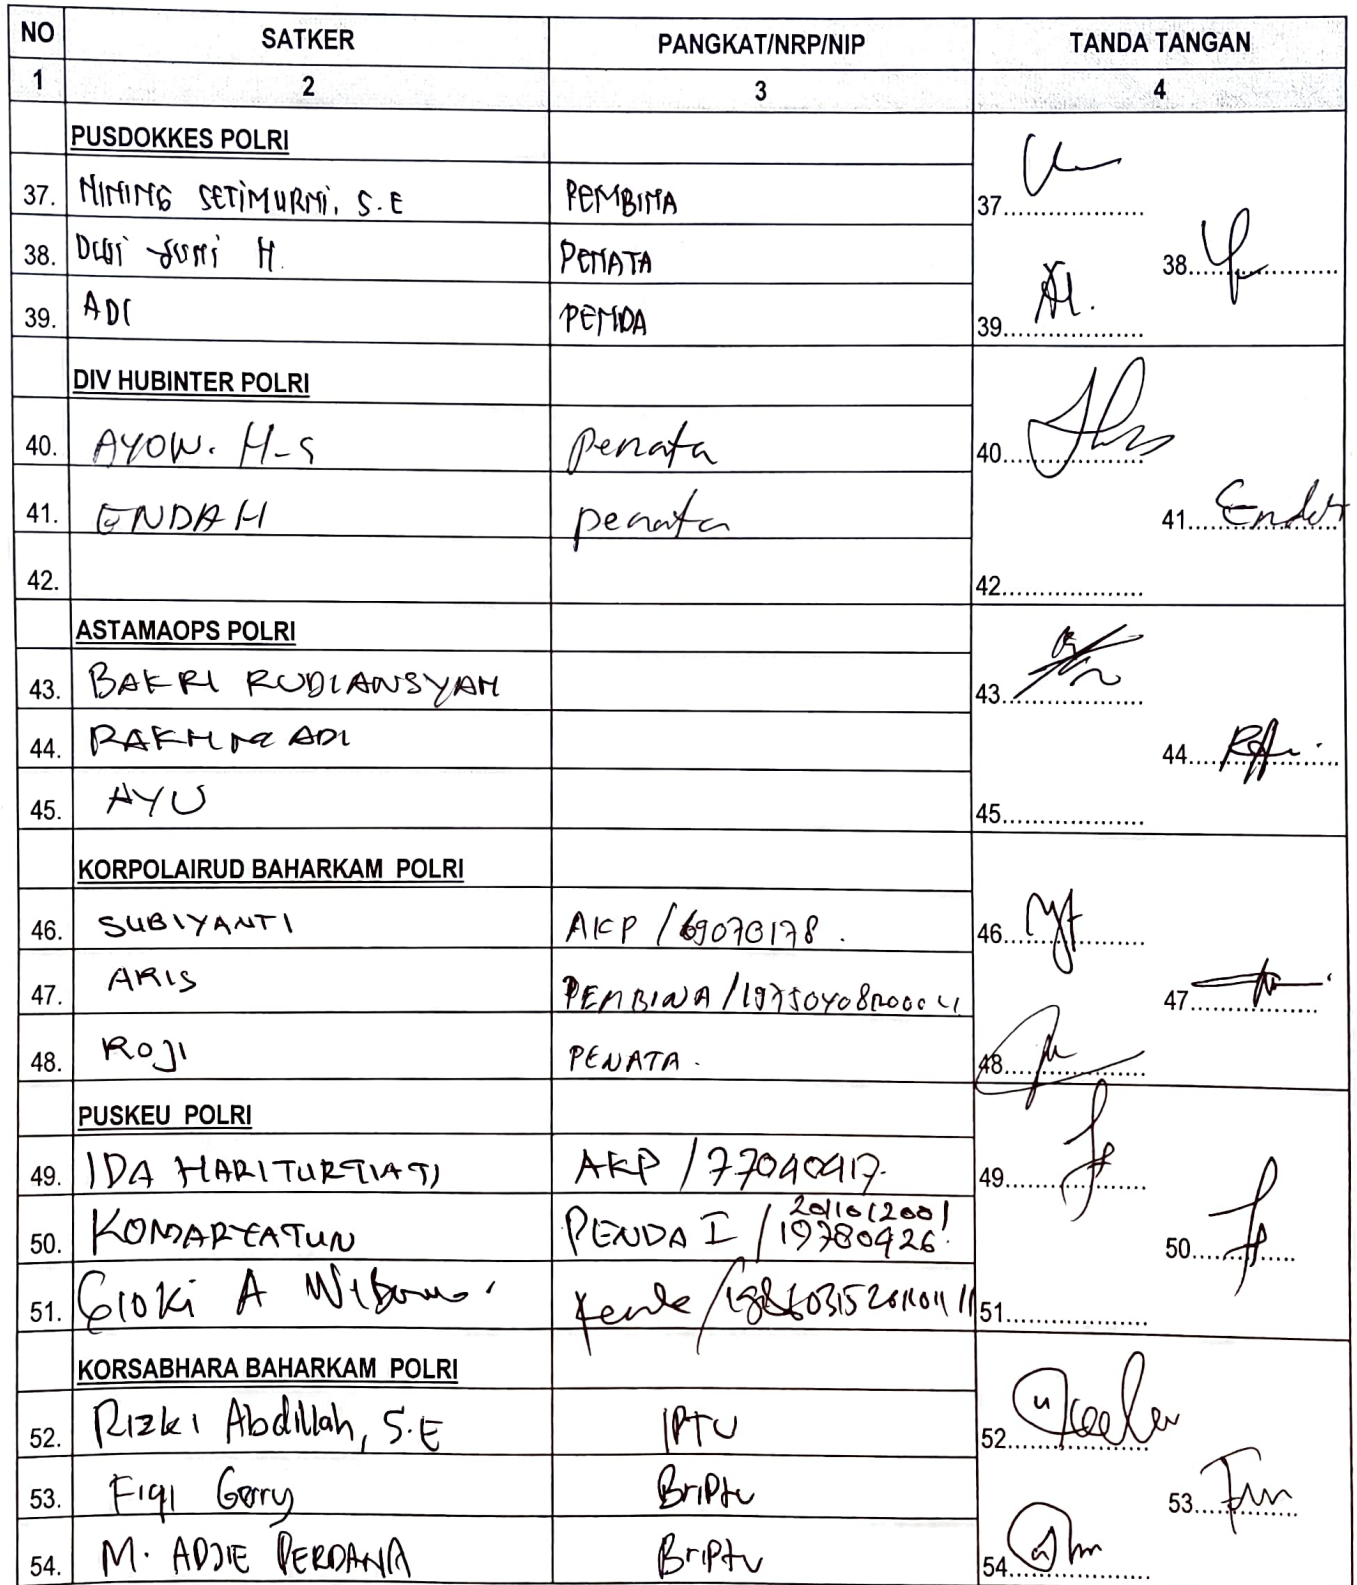 NO SATKER PANGKAT/NRP/NIP TANDA TANGAN
1 2 3 4
PUSDOKKES POLRI
37. NINING SETIMURNI, S.E PEMBINA 37
38. DEWI YUNI H. PENATA 38
39. ADI PENDA 39
DIV HUBINTER POLRI
40. AYOW. H-S penata 40
41. ENDAH penata 41 Endah
42. 42
ASTAMAOPS POLRI
43. BAKRI RUDIANSYAH 43
44. RAKHMADI 44
45. AYU 45
KORPOLAIRUD BAHARKAM POLRI
46. SUBIYANTI AKP / 69070178. 46
47. ARIS PEMBINA / 47
48. ROJI PENATA. 48
PUSKEU POLRI
49. IDA HARITURTIATI AKP / 77040417. 49
50. KOMARYATUN PENDA I / 19780426 50
51. A 51
KORSABHARA BAHARKAM POLRI
52. Rizki Abdillah, S.E IPTU 52
53. Fiqi Gerry Briptu 53
54. M. ADJIE PERDANA Briptu 54